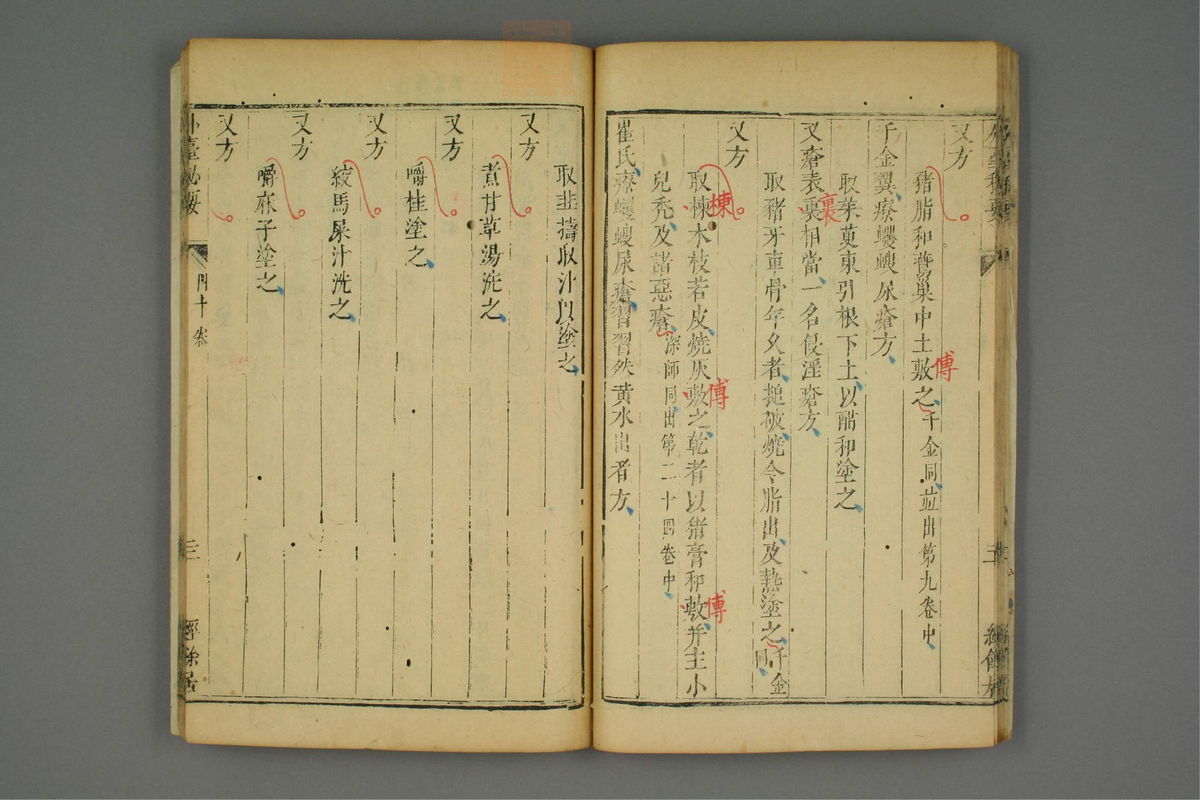 又方
猪脂和鷰巢中土敷之千金同並出第九卷中
傅
千金翼療蠼螋尿瘡方
取茱萸東引根下土以酢和塗之
又瘡表裏相當一名侵淫瘡方
裏
取豬牙車骨年久者搥破燒令脂出及熱塗之千金同
又方
取楝木枝若皮燒灰敷之乾者以猪膏和敷并主小
楝
傅
傅
兒禿及諸惡瘡深師同出第二十四卷中
崔氏療蠼螋尿瘡習習然黄水出者方
取韭擣取汁以塗之
又方
煮甘草湯洗之
又方
嚼桂塗之
又方
絞馬屎汁洗之
又方
嚼麻子塗之
又方
外臺秘要
四十卷
三
經餘居